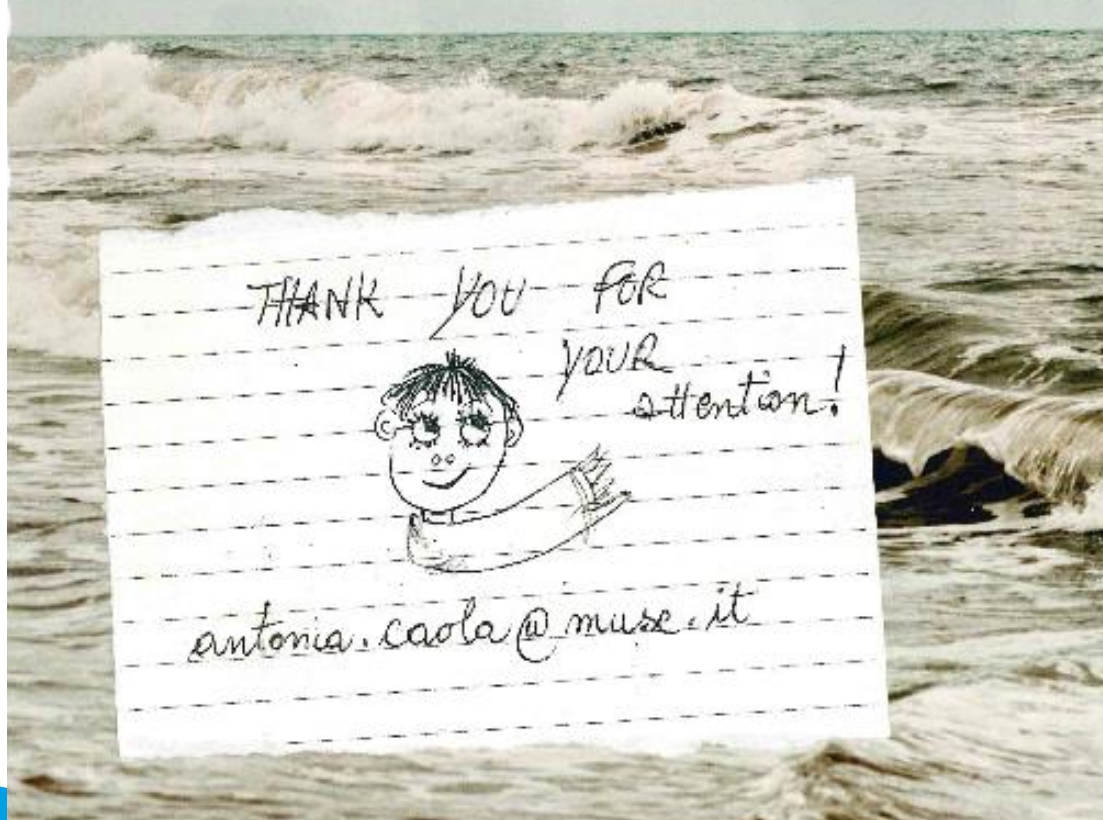 THANK YOU FOR
YOUR
attention!
antonia.caola@muse.it